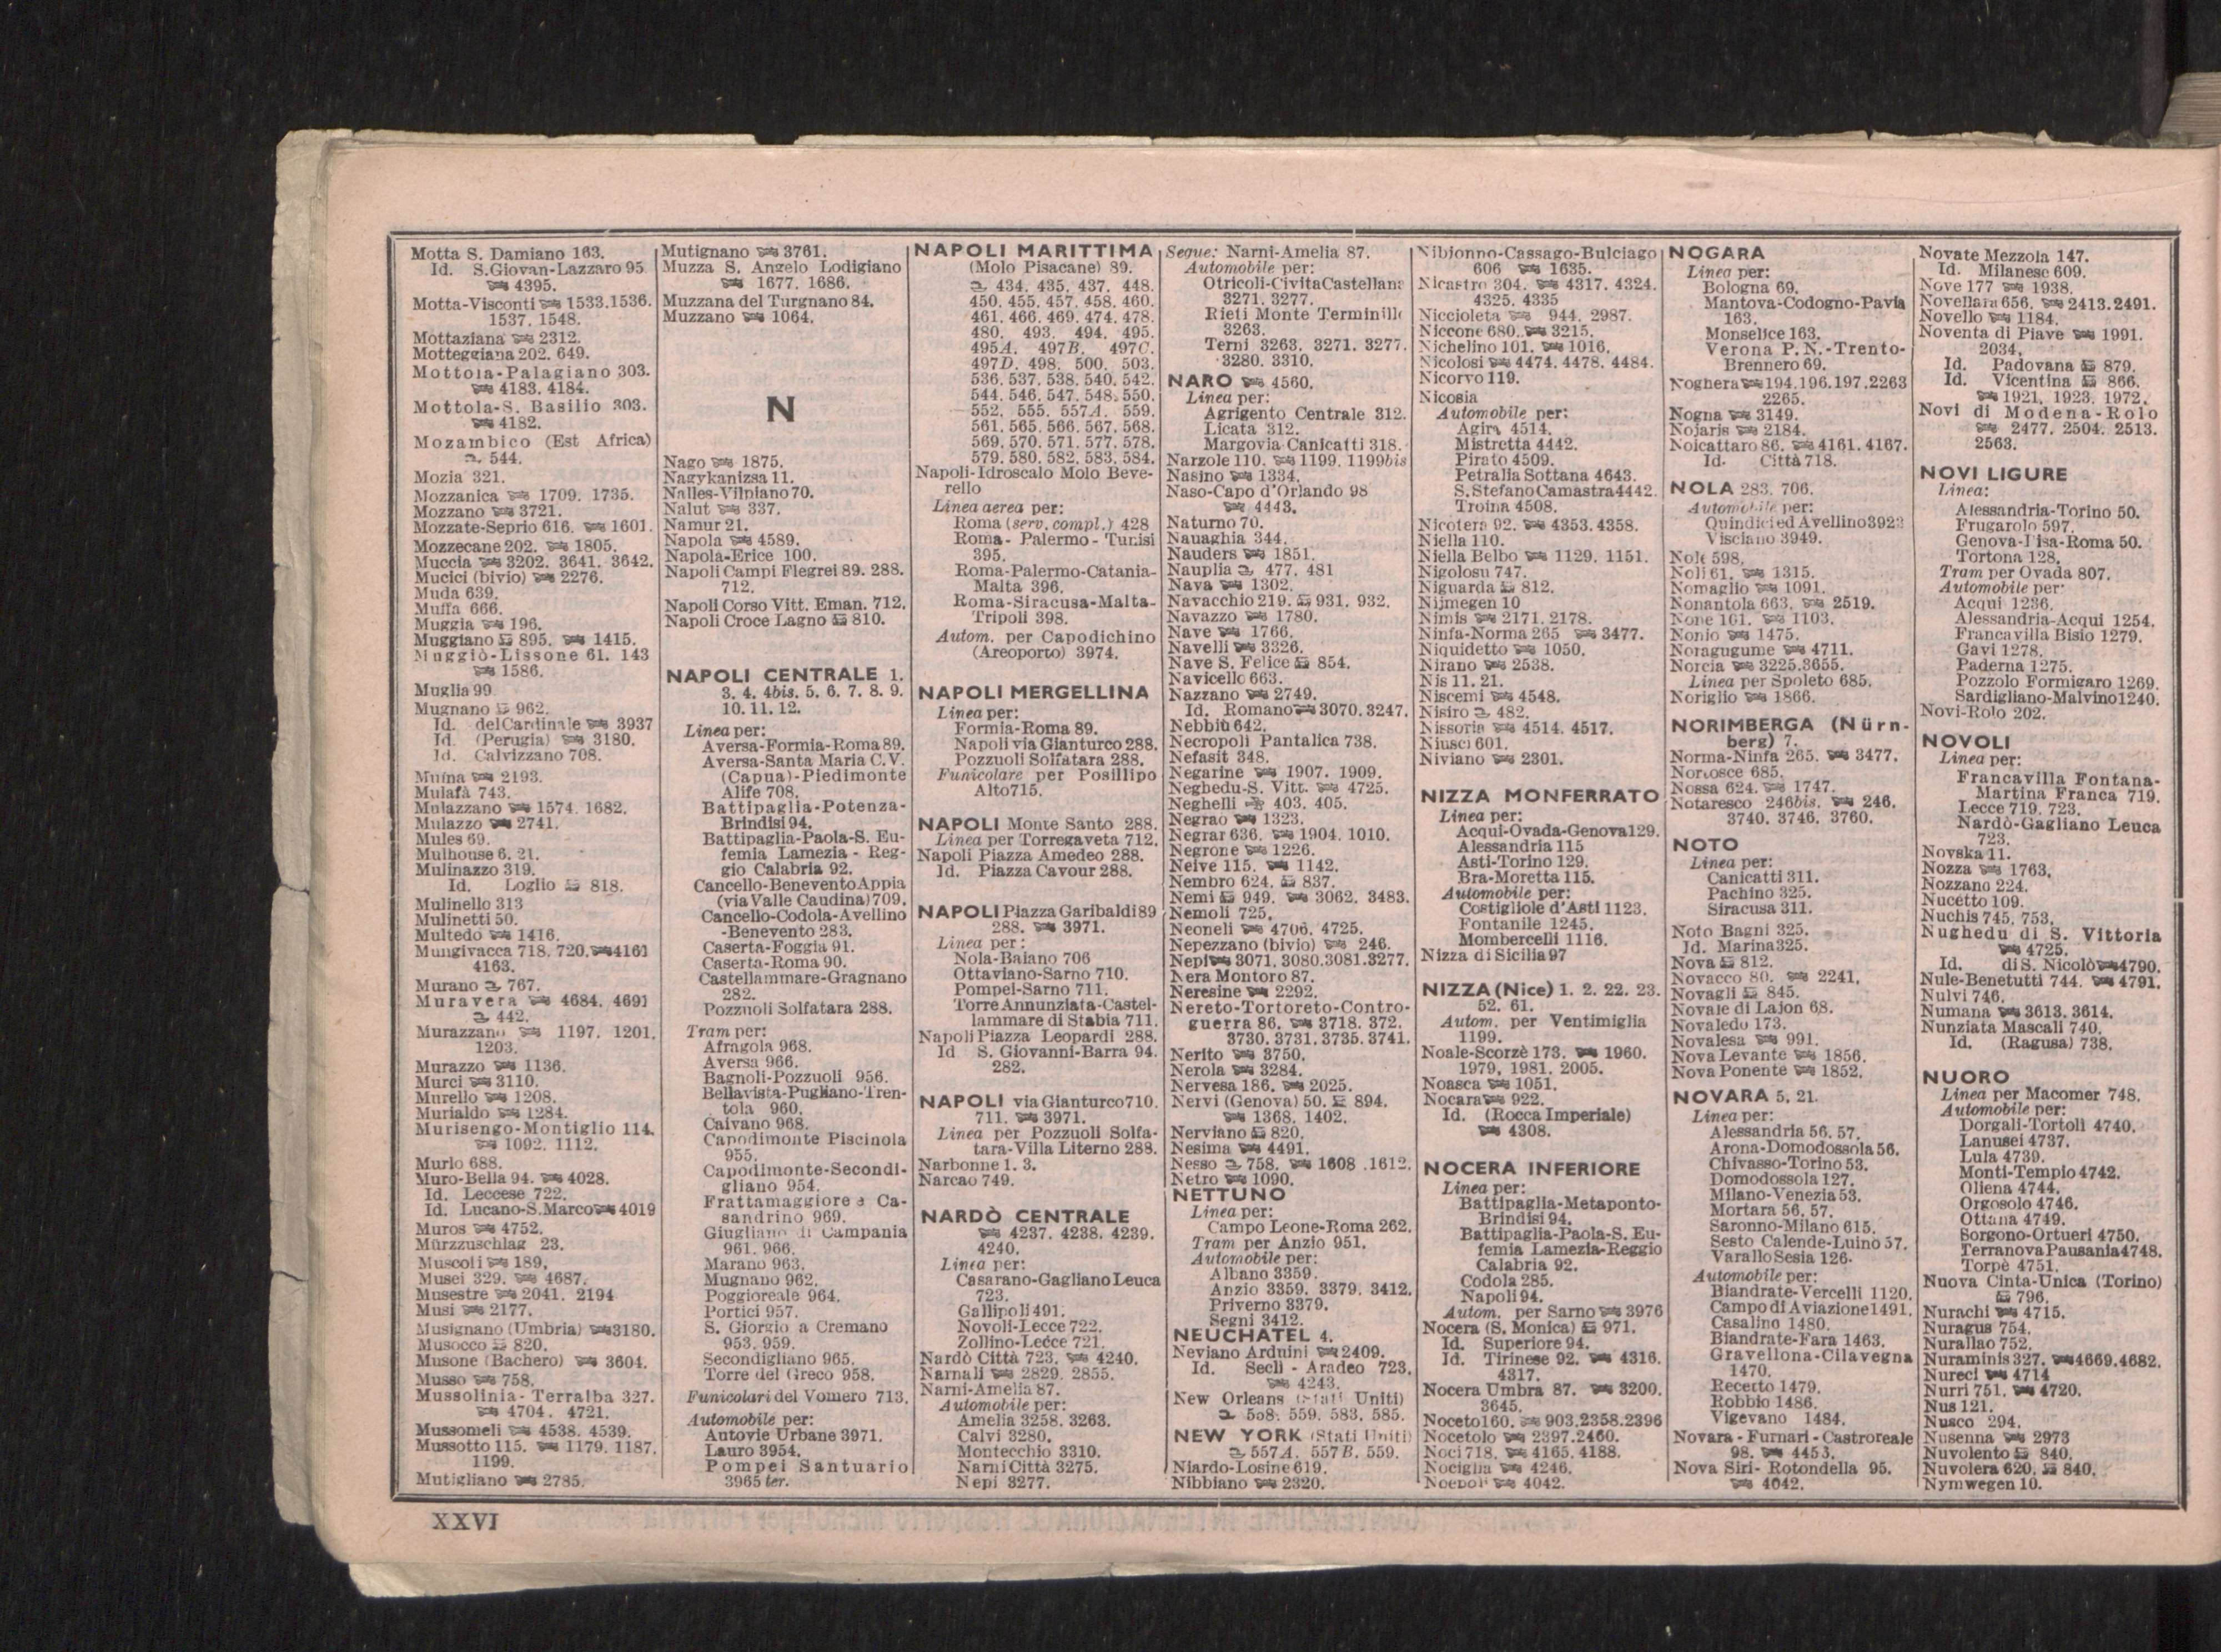 Motta S. Damiano 163.
Id. S.Giovan-Lazzaro 95
4395.
Motta-Visconti 1533.1536.
1537. 1548.
Mottaziana 2312.
Motteggiana 202. 649.
Mottola-Palagiano 303.
4183. 4184.
Mottola-S. Basilio 303.
4182.
Mozambico (Est Africa)
544.
Mozia 321.
Mozzanica 1709. 1735.
Mozzano 3721.
Mozzate-Seprio 616. 1601.
Mozzecane 202. 1805.
Muccia 3202. 3641. 3642.
Mucici (bivio) 2276.
Muda 639.
Muffa 666.
Muggia 196.
Muggiano 895. 1415.
Muggiò-Lissone 61. 143
1586.
Muglia 99
Mugnano 962.
Id. del Cardinale 3937
Id. (Perugia) 3180.
Id. Calvizzano 708.
Muina 2193.
Mulafà 743.
Mulazzano 1574. 1682.
Mulazzo 2741.
Mules 69.
Mulhouse 6. 21.
Mulinazzo 319.
Id. Loglio 818.
Mulinello 313
Mulinetti 50.
Multedo 1416.
Mungivacca 718. 720. 4161
4163.
Murano 767.
Muravera 4684. 4691
442.
Murazzano 1197. 1201.
1203.
Murazzo 1136.
Murci 3110.
Murello 1208.
Murialdo 1284.
Murisengo-Montiglio 114.
1092. 1112.
Murlo 688.
Muro-Bella 94. 4028.
Id. Leccese 722.
Id. Lucano-S.Marco 4019
Muros 4752.
Mürzzuschlag 23.
Muscoli 189.
Musei 329. 4687.
Musestre 2041. 2194
Musi 2177.
Musignano (Umbria) 3180.
Musocco 820.
Musone (Bachero) 3604.
Musso 758.
Mussolinia-Terralba 327.
4704. 4721.
Mussomeli 4538. 4539.
Mussotto 115. 1179. 1187.
1199.
Mutigliano 2785.
Mutignano 3761.
Muzza S. Angelo Lodigiano
1677. 1686.
Muzzana del Turgnano 84.
Muzzano 1064.
N
Nago 1875.
Nagykanizsa 11.
Nalles-Vilpiano 70.
Nalut 337.
Namur 21.
Napola 4589.
Napola-Erice 100.
Napoli Campi Flegrei 89. 288.
712.
Napoli Corso Vitt. Eman. 712.
Napoli Croce Lagno 810.
NAPOLI CENTRALE 1.
3. 4. 4bis. 5. 6. 7. 8. 9.
10. 11. 12.
Linea per:
Aversa-Formia-Roma 89.
Aversa-Santa Maria C.V.
(Capua)-Piedimonte
Alife 708.
Battipaglia-Potenza-
Brindisi 94.
Battipaglia-Paola-S. Eu-
femia Lamezia - Reg-
gio Calabria 92.
Cancello-Benevento Appia
(via Valle Caudina) 709.
Cancello-Codola-Avellino
-Benevento 283.
Caserta-Foggia 91.
Caserta-Roma 90.
Castellammare-Gragnano
282.
Pozzuoli Solfatara 288.
Tram per:
Afragola 968.
Aversa 966.
Bagnoli-Pozzuoli 956.
Bellavista-Pugliano-Tren-
tola 960.
Caivano 968.
Capodimonte Piscinola
955.
Capodimonte-Secondi-
gliano 954.
Frattamaggiore e Ca-
sandrino 969.
Giugliano di Campania
961. 966.
Marano 963.
Mugnano 962.
Poggioreale 964.
Portici 957.
S. Giorgio a Cremano
953. 959.
Secondigliano 965.
Torre del Greco 958.
Funicolari del Vomero 713.
Automobile per:
Autovie Urbane 3971.
Lauro 3954.
Pompei Santuario
3965 ter.
NAPOLI MARITTIMA
(Molo Pisacane) 89.
434. 435. 437. 448.
450. 455. 457. 458. 460.
461. 466. 469. 474. 478.
480. 493. 494. 495.
495A. 497B. 497C.
497D. 498. 500. 503.
536. 537. 538. 540. 542.
544. 546. 547. 548. 550.
552. 555. 557A. 559.
561. 565. 566. 567. 568.
569. 570. 571. 577. 578.
579. 580. 582. 583. 584.
Napoli-Idroscalo Molo Beve-
rello
Linea aerea per:
Roma (serv. compl.) 428
Roma- Palermo - Tunisi
395.
Roma-Palermo-Catania-
Malta 396.
Roma-Siracusa-Malta-
Tripoli 398.
Autom. per Capodichino
(Areoporto) 3974.
NAPOLI MERGELLINA
Linea per:
Formia-Roma 89.
Napoli via Gianturco 288.
Pozzuoli Solfatara 288.
Funicolare per Posillipo
Alto 715.
NAPOLI Monte Santo 288.
Linea per Torregaveta 712.
Napoli Piazza Amedeo 288.
Id. Piazza Cavour 288.
NAPOLI Piazza Garibaldi 89
288. 3971.
Linea per:
Nola-Baiano 706
Ottaviano-Sarno 710.
Pompei-Sarno 711.
Torre Annunziata-Castel-
lammare di Stabia 711.
Napoli Piazza Leopardi 288.
Id S. Giovanni-Barra 94.
282.
NAPOLI via Gianturco 710.
711. 3971.
Linea per Pozzuoli Solfa-
tara-Villa Literno 288.
Narbonne 1. 3.
Narcao 749.
NARDÒ CENTRALE
4237. 4238. 4239.
4240.
Linea per:
Casarano-Gagliano Leuca
723.
Gallipoli 491.
Novoli-Lecce 722.
Zollino-Lecce 721.
Nardò Città 723. 4240.
Narnali 2829. 2855.
Narni-Amelia 87.
Automobile per:
Amelia 3258. 3263.
Calvi 3280.
Montecchio 3310.
Narni Città 3275.
Nepi 3277.
Segue: Narni-Amelia 87.
Automobile per:
Otricoli-Civita Castellana
3271. 3277.
Rieti Monte Terminillo
3263.
Terni 3263. 3271. 3277.
3280. 3310.
NARO 4560.
Linea per:
Agrigento Centrale 312.
Licata 312.
Margovia-Canicatti 318.
Narzole 110. 1199. 1199bis
Nasino 1334.
Naso-Capo d'Orlando 98
4443.
Naturno 70.
Nauaghia 344.
Nauders 1851.
Nauplia 477. 481
Nava 1302.
Navacchio 219. 931. 932.
Navazzo 1780.
Nave 1766.
Navelli 3326.
Nave S. Felice 854.
Navicello 663.
Nazzano 2749.
Id. Romano 3070. 3247.
Nebbiù 642.
Necropoli Pantalica 738.
Nefasit 348.
Negarine 1907. 1909.
Neghedu-S. Vitt. 4725.
Neghelli 403. 405.
Negrao 1323.
Negrar 636. 1904. 1010.
Negrone 1226.
Neive 115. 1142.
Nembro 624. 837.
Nemi 949. 3062. 3483.
Nemoli 725.
Neoneli 4706. 4725.
Nepezzano (bivio) 246.
Nepi 3071. 3080.3081.3277.
Nera Montoro 87.
Neresine 2292.
Nereto-Tortoreto-Contro-
guerra 86. 3718. 372.
3730. 3731. 3735. 3741.
Nerito 3750.
Nerola 3284.
Nervesa 186. 2025.
Nervi (Genova) 50. 894.
1368. 1402.
Nerviano 820.
Nesima 4491.
Nesso 758. 1608 .1612.
Netro 1090.
NETTUNO
Linea per:
Campo Leone-Roma 262.
Tram per Anzio 951.
Automobile per:
Albano 3359.
Anzio 3359. 3379. 3412.
Priverno 3379.
Segni 3412.
NEUCHATEL 4.
Neviano Arduini 2409.
Id. Secli - Aradeo 723.
4243.
New Orleans (Stati Uniti)
558. 559. 583. 585.
NEW YORK (Stati Uniti)
557A. 557B. 559.
Niardo-Losine 619.
Nibbiano 2320.
Nibionno-Cassago-Bulciago
606 1635.
Nicastro 304. 4317. 4324.
4325. 4335
Niccioleta 944. 2987.
Niccone 680. 3215.
Nichelino 101. 1016.
Nicolosi 4474. 4478. 4484.
Nicorvo 119.
Nicosia
Automobile per:
Agira 4514.
Mistretta 4442.
Pirato 4509.
Petralia Sottana 4643.
S. Stefano Camastra 4442.
Troina 4508.
Nicotera 92. 4353. 4358.
Niella 110.
Niella Belbo 1129. 1151.
Nigolosu 747.
Niguarda 812.
Nijmegen 10
Nimis 2171. 2178.
Ninfa-Norma 265 3477.
Niquidetto 1050.
Nirano 2538.
Nis 11. 21.
Niscemi 4548.
Nisiro 482.
Nissoria 4514. 4517.
Niusci 601.
Niviano 2301.
NIZZA MONFERRATO
Linea per:
Acqui-Ovada-Genova 129.
Alessandria 115
Asti-Torino 129.
Bra-Moretta 115.
Automobile per:
Costigliole d'Asti 1123.
Fontanile 1245.
Mombercelli 1116.
Nizza di Sicilia 97
NIZZA (Nice) 1. 2. 22. 23.
52. 61.
Autom. per Ventimiglia
1199.
Noale-Scorzè 173. 1960.
1979. 1981. 2005.
Noasca 1051.
Nocara 922.
Id. (Rocca Imperiale)
4308.
NOCERA INFERIORE
Linea per:
Battipaglia-Metaponto-
Brindisi 94.
Battipaglia-Paola-S. Eu-
femia Lamezia-Reggio
Calabria 92.
Codola 285.
Napoli 94.
Autom. per Sarno 3976
Nocera (S. Monica) 971.
Id. Superiore 94.
Id. Tirinese 92. 4316.
4317.
Nocera Umbra 87. 3200.
3645.
Noceto 160. 903.2358.2396
Nocetolo 2397.2460.
Noci 718. 4165. 4188.
Nociglia 4246.
Noepoli 4042.
NOGARA
Linea per:
Bologna 69.
Mantova-Codogno-Pavia
163.
Monselice 163.
Verona P.N.-Trento-
Brennero 69.
Noghera 194.196.197.2263
2265.
Nogna 3149.
Nojaris 2184.
Noicattaro 86. 4161. 4167.
Id. Città 718.
NOLA 283. 706.
Automobile per:
Quindici ed Avellino 3923
Visciano 3949.
Nole 598.
Noli 61. 1315.
Nomaglio 1091.
Nonantola 663. 2519.
None 101. 1103.
Nonio 1475.
Noragugume 4711.
Norcia 3225.3655.
Linea per Spoleto 685.
Noriglio 1866.
NORIMBERGA (Nürn-
berg) 7.
Norma-Ninfa 265. 3477.
Nortosce 685.
Nossa 624. 1747.
Notaresco 246bis. 246.
3740. 3746. 3760.
NOTO
Linea per:
Canicatti 311.
Pachino 325.
Siracusa 311.
Noto Bagni 325.
Id. Marina 325.
Nova 812.
Novacco 80. 2241.
Novagli 845.
Novale di Lajon 68.
Novaledo 173.
Novalesa 991.
Nova Levante 1856.
Nova Ponente 1852.
NOVARA 5. 21.
Linea per:
Alessandria 56. 57.
Arona-Domodossola 56.
Chivasso-Torino 53.
Domodossola 127.
Milano-Venezia 53.
Mortara 56. 57.
Saronno-Milano 615.
Sesto Calende-Luino 57.
Varallo Sesia 126.
Automobile per:
Biandrate-Vercelli 1120.
Campo di Aviazione 1491.
Casalino 1480.
Biandrate-Fara 1463.
Gravellona-Cilavegna
1470.
Recerto 1479.
Robbio 1486.
Vigevano 1484.
Novara - Furnari - Castroreale
98. 4453.
Nova Siri- Rotondella 95.
4042.
Novate Mezzola 147.
Id. Milanese 609.
Nove 177 1938.
Novellara 656. 2413.2491.
Novello 1184.
Noventa di Piave 1991.
2034.
Id. Padovana 879.
Id. Vicentina 866.
1921. 1923. 1972.
Novi di Modena-Rolo
2477. 2504. 2513.
2563.
NOVI LIGURE
Linea:
Alessandria-Torino 50.
Frugarolo 597.
Genova-Pisa-Roma 50.
Tortona 128.
Tram per Ovada 807.
Automobile per:
Acqui 1236.
Alessandria-Acqui 1254.
Francavilla Bisio 1279.
Gavi 1278.
Paderna 1275.
Pozzolo Formigaro 1269.
Sardigliano-Malvino 1240.
Novi-Rolo 202.
NOVOLI
Linea per:
Francavilla Fontana-
Martina Franca 719.
Lecce 719. 723.
Nardò-Gagliano Leuca
723.
Novska 11.
Nozza 1763.
Nozzano 224.
Nucetto 109.
Nuchis 745. 753.
Nughedu di S. Vittoria
4725.
Id. di S. Nicolò 4790.
Nule-Benetutti 744. 4791.
Nulvi 746.
Numana 3613. 3614.
Nunziata Mascali 740.
Id. (Ragusa) 738.
NUORO
Linea per Macomer 748.
Automobile per:
Dorgali-Tortolì 4740.
Lanusei 4737.
Lula 4739.
Monti-Tempio 4742.
Oliena 4744.
Orgosolo 4746.
Ottana 4749.
Sorgono-Ortueri 4750.
Terranova Pausania 4748.
Torpè 4751.
Nuova Cinta-Unica (Torino)
796.
Nurachi 4715.
Nuragus 754.
Nurallao 752.
Nuraminis 327. 4669.4682.
Nureci 4714
Nurri 751. 4720.
Nus 121.
Nusco 294.
Nusenna 2973
Nuvolento 840.
Nuvolera 620. 840.
Nymwegen 10.
XXVI